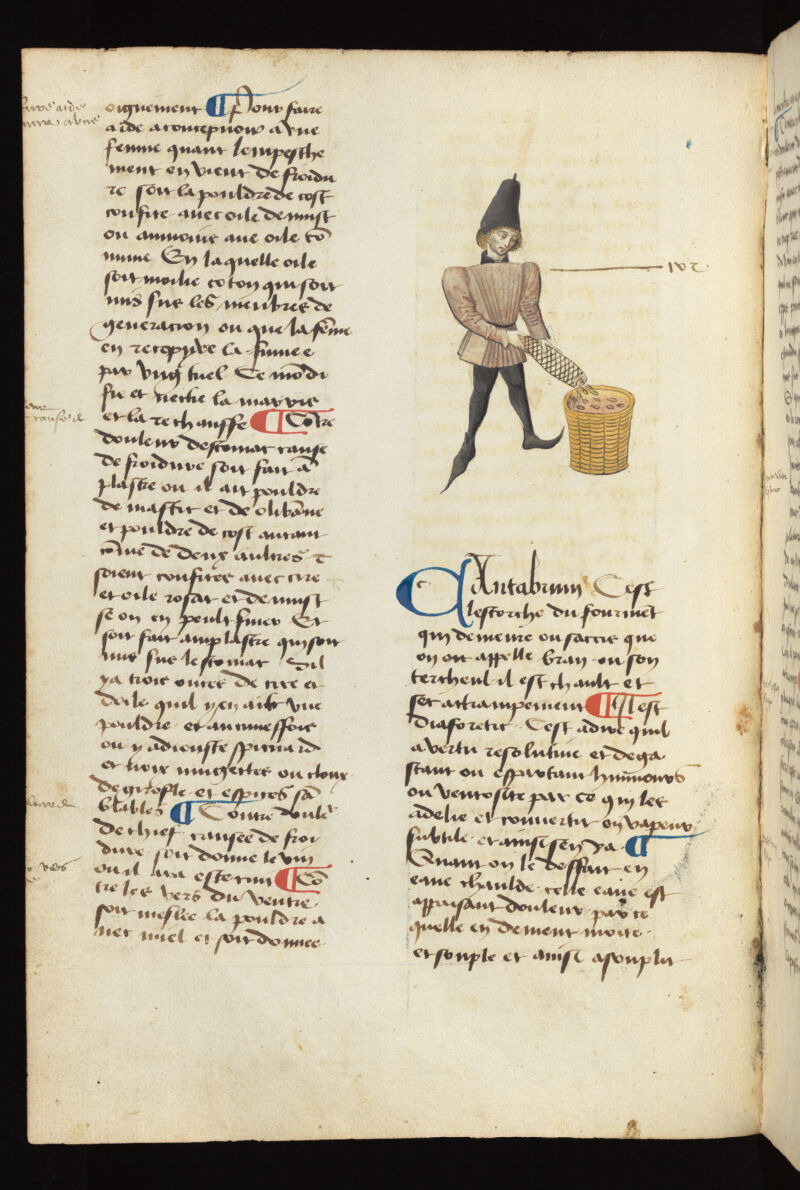 oignement ¶ Pour faire
aide a concepuoir a vne
femme quant lempesche
ment en vient de froidu
re soit la pouldre de cost
confite auec oile de must
ou ammoins aue oile cō
mune En laquelle oile
soit moilie coton qui soit
mis sus les menbres de
generacion ou que la fēme
en recepyue la fumee
par vng tuel Ce mōdi
fie et nectie la marris
et la rechauffe ¶ Cōtre
douleur destomac cause
de froidure soit fait ā
plastre ou il ait pouldre
de mastic et de olibāne
et pouldre de cost autant
cōme de deux aultres &
soient confites auec cire
et oile rosat et de must
se on en peult finer Et
soit fait amplastre qui soit
mis sus lestomac Sil
ya trois onces de cire et
doile quil y en ait vne
pouldre et aucuneffois
on y adiouste spicnard
et noix muguettes ou clouz
de girofle et espices sā
blables ¶ Contre doule
de chief causee de froi
dure soit donne le vin
ou il ara este cuit ¶ Cō
tre les vers du ventre
soit meslee la pouldre a
uec miel et soit donnee
CAntabrum Cest
lescorche du fourmēt
qui demeure ou saccis que
on on appelle bran ou son
tercheul il est chault et
sec actrampement ¶ Il est
diaforetic Cest adire quil
a vertu resolutiue et dega
stant ou espartant hummours
ou ventosite par ce qui les
adelie et conuertit en vapeur
subtile et ainsi sen va ¶
Quant on le deffait en
eaue chaulde celle eaue est
appaisant douleur par ce
quelle en demeut moite
et souple et ainsi asouplit